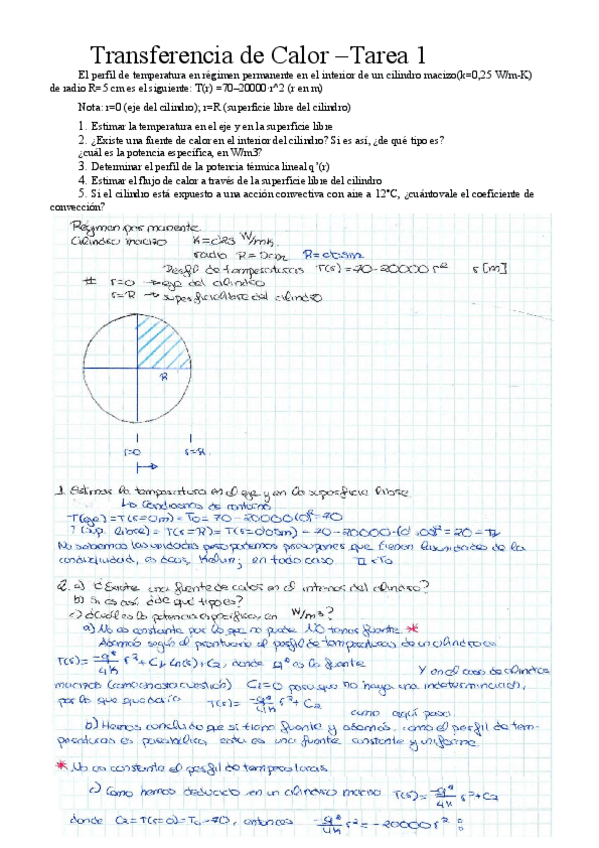 Transferencia de Calor –Tarea 1
El perfil de temperatura en régimen permanente en el interior de un cilindro macizo(k=0,25 W/m-K)
de radio R= 5 cm es el siguiente: T(r) =70–20000·r^2 (r en m)
Nota: r=0 (eje del cilindro); r=R (superficie libre del cilindro)
1. Estimar la temperatura en el eje y en la superficie libre
2. ¿Existe una fuente de calor en el interior del cilindro? Si es así, ¿de qué tipo es?
¿cuál es la potencia específica, en W/m3?
3. Determinar el perfil de la potencia térmica lineal q'(r)
4. Estimar el flujo de calor a través de la superficie libre del cilindro
5. Si el cilindro está expuesto a una acción convectiva con aire a 12ºC, ¿cuántovale el coeficiente de
convección?
Régimen permanente
Cilindro macizo K=0'25 W/mK
radio R=5cm R=0'05m
Perfil de temperaturas T(r)=70-20000 r² r[m]
# r=0 → eje del cilindro
r=R → superficie libre del cilindro
R
r=0 r=R
1. Estimar la temperatura en el eje y en la superficie libre
Condiciones de contorno
T(eje)=T(r=0m)=T0=70-20000(0)²=70
T(sup. libre)=T(r=R)=T(r=0'05m)=70-20000·(0'05)²=20=
No sabemos las unidades pero podemos presuponer que tienen las unidades de la
conductividad, es decir, Kelvin; en todo caso
2. a) ¿Existe una fuente de calor en el interior del cilindro?
b) Si es así ¿de qué tipo es?
c) ¿Cuál es la potencia específica, en W/m³?
a) No es constante por lo que no puede NO tener fuente *
Además según el prontuario el perfil de temperaturas de un cilindro es
T(r)= -q'''/4K r²+C1 Ln(r)+C2, donde q''' es la fuente Y en el caso de cilindros
macizos (como en esta cuestión) C1=0 para que no haya una indeterminación,
por lo que quedaría T(r)= -q'''/4K r²+C2
como aquí pasa.
b) Hemos concluido que si tiene fuente y además, como el perfil de tem-
peraturas es parabólico, esta es una fuente constante y uniforme
* No es constante el perfil de temperaturas.
c) Como hemos deducido en un cilindro macizo T(r)= -q'''/4K r²+C2
donde C2=T(r=0)=T0=70, entonces -q'''/4K r²=-20000 r²